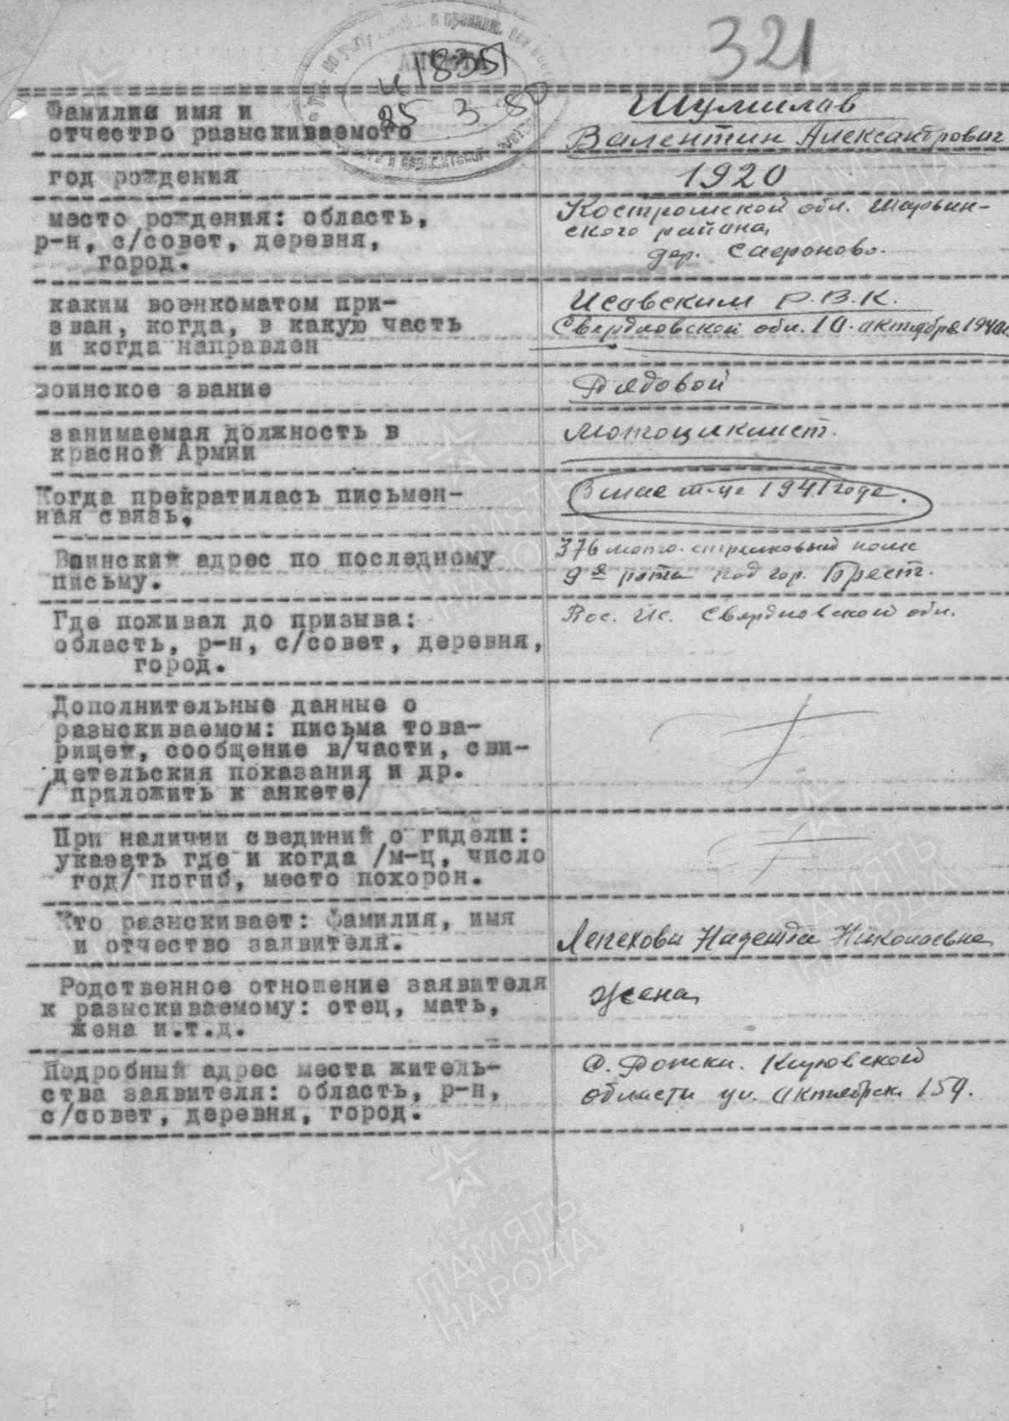 321
41835
25 3 80
Фамилия имя и
отчество разыскиваемого
Шумилав
Валентин Александрович
год рождения
1920
место рождения: область,
р-н, с/совет, деревня,
город.
Костромской обл. Шарьин-
ского района,
дер. Сафроново.
каким военкоматом при-
зван, когда, в какую часть
и когда направлен
Исавским Р.В.К.
Свердловской обл. 10. октября 1940г
воинское звание
Рядовой
занимаемая должность в
красной Армии
Мотоциклист.
Когда прекратилась письмен-
ная связь.
В мае м-це 1941 годе.
Воинский адрес по последному
письму.
376 мото. стрелковый полк
9я рота под гор. Брест.
Где поживал до призыва:
область, р-н, с/совет, деревня,
город.
Пос. Ис. Свердловской обл.
Дополнительные данные о
разыскиваемом: письма това-
рищей, сообщение в/части, сви-
детельския показания и др.
/ приложить к анкете/
При наличии свединий о гидели:
указать где и когда /м-ц, число
год/ погиб, место похорон.
Кто разыскивает: фамилия, имя
и отчество заявителя.
Надежда Николаевна
Родственное отношение заявителя
к разыскиваемому: отец, мать,
жена и.т.д.
Жена,
Подробный адрес места житель-
ства заявителя: область, р-н,
с/совет, деревня, город.
Кировской
области ул. Октябрск. 159.
ПАМЯТЬ
НАРОДА